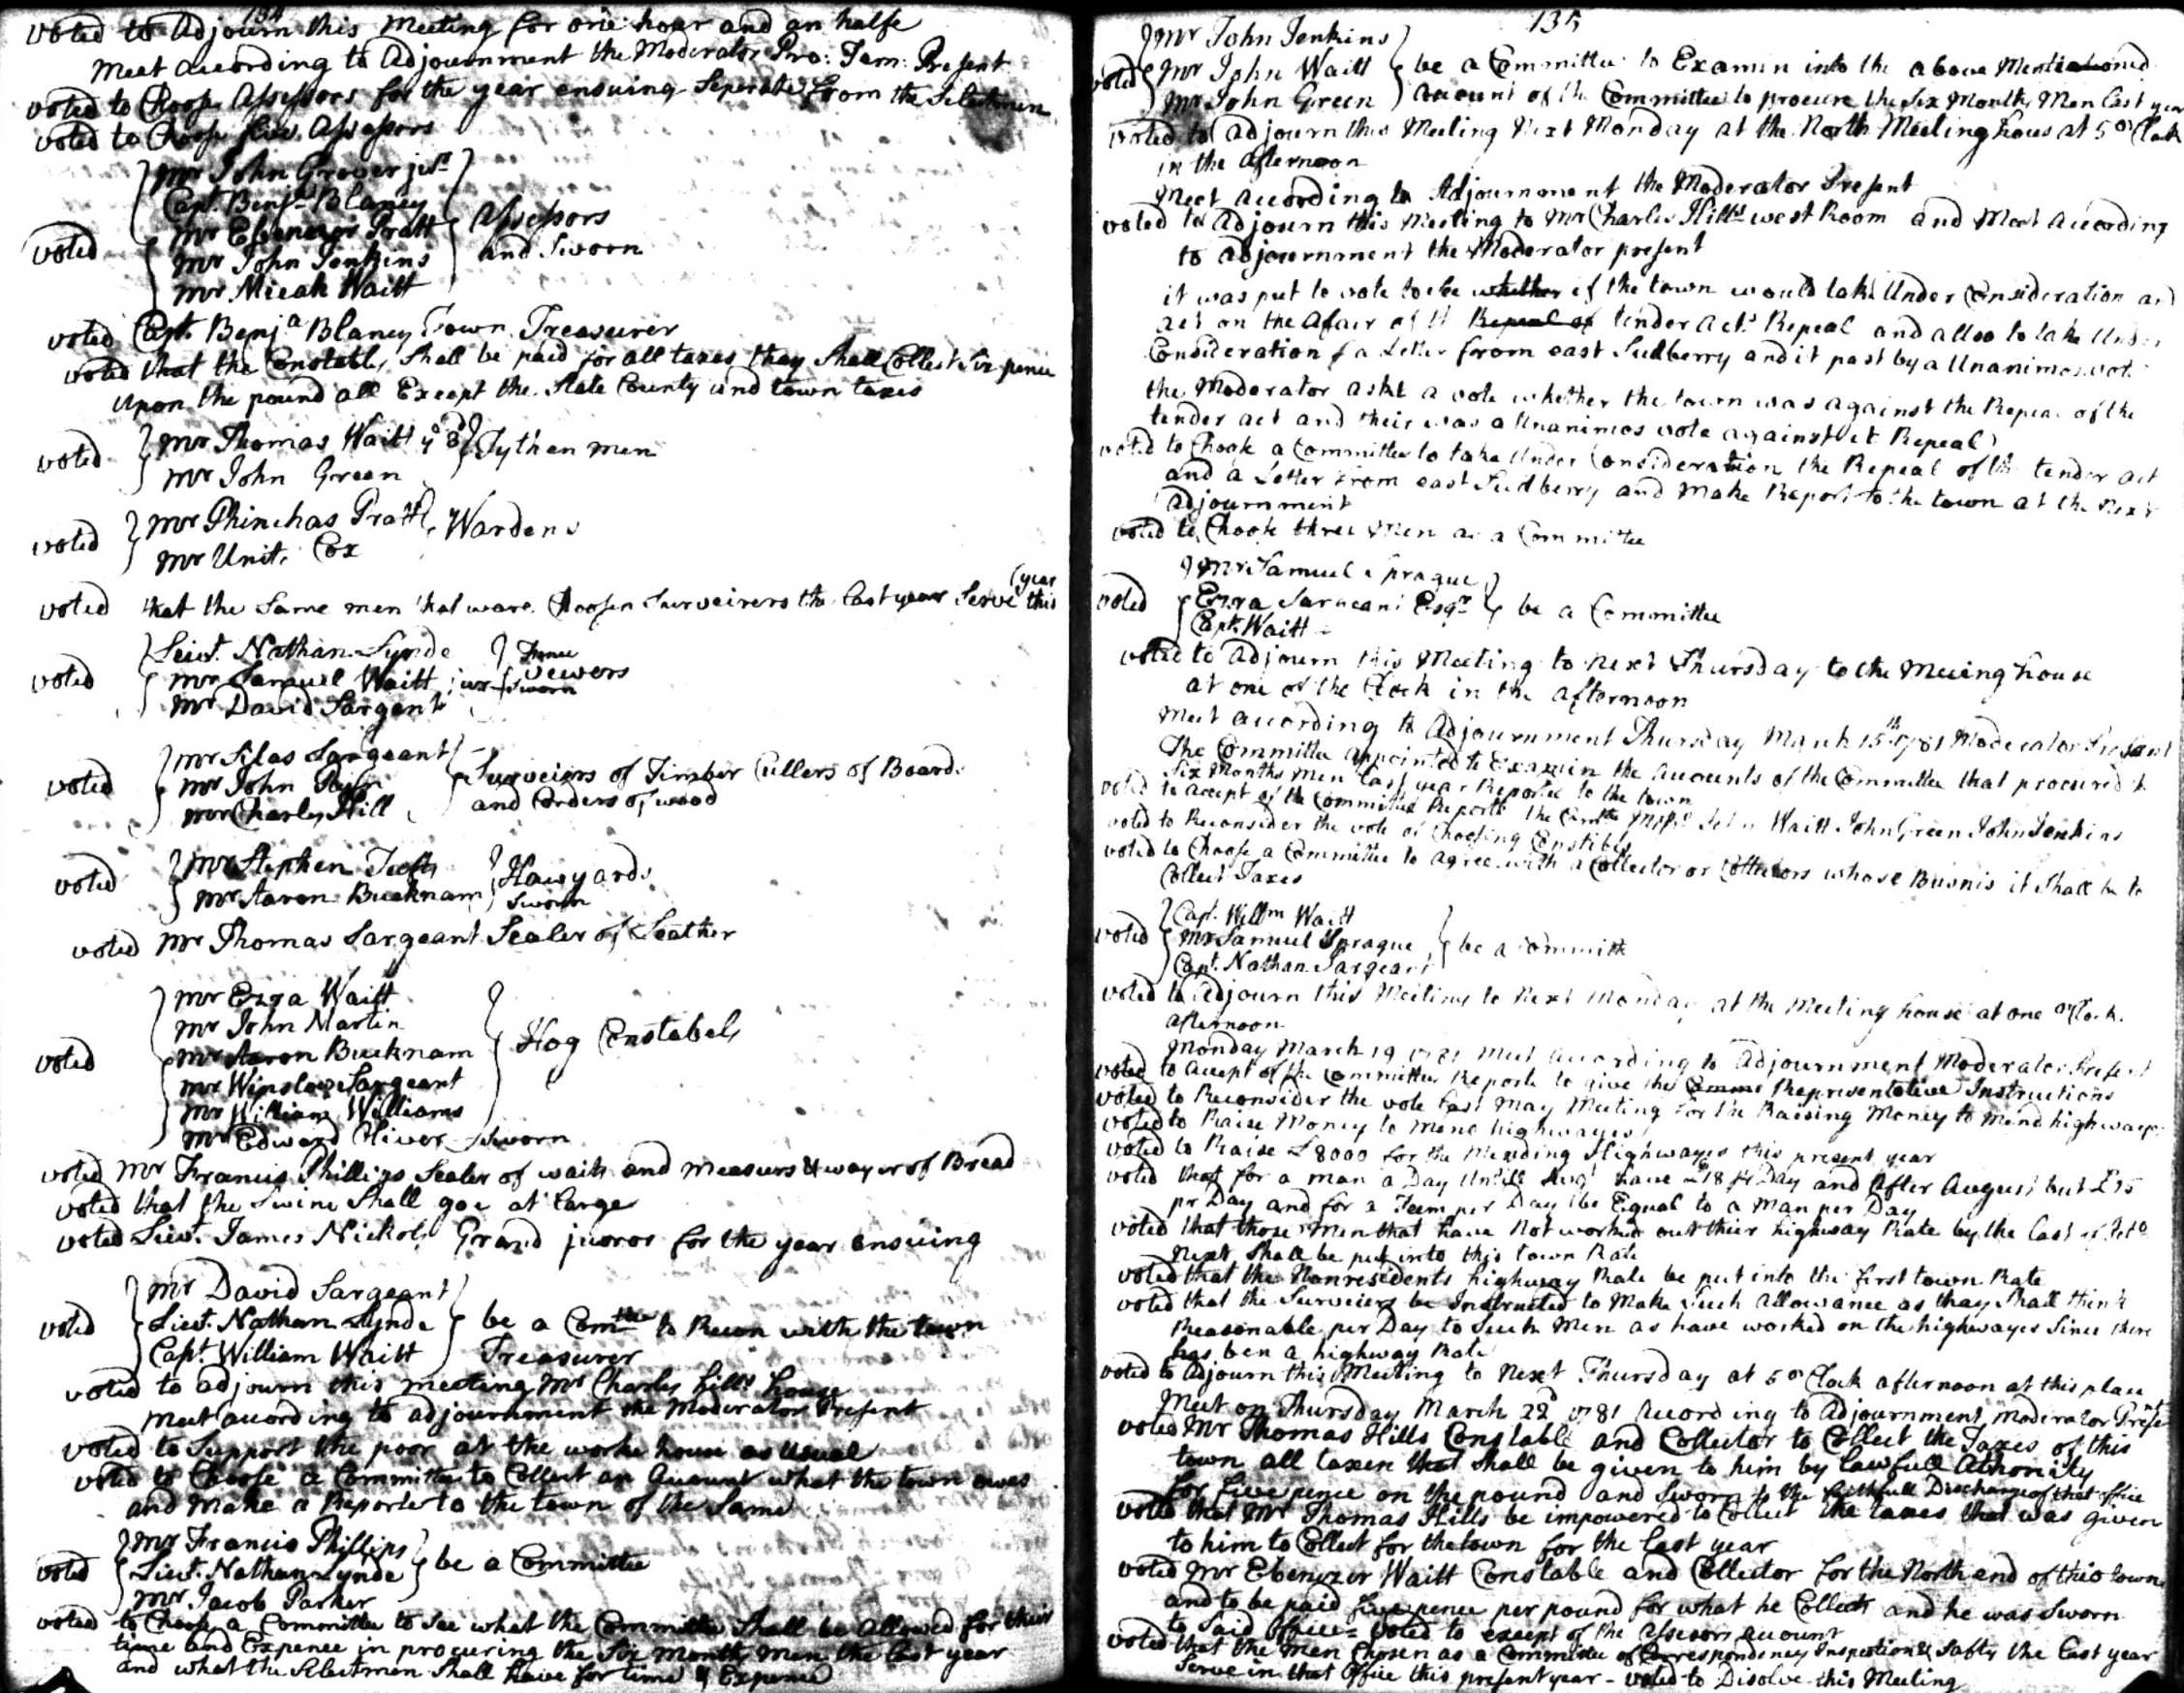 134
voted to Adjourn this Meeting for one hour and an halfe
Meet according to Adjournment the Moderator Pro: Tem: Present
voted to Choose Assessors for the year ensuing Seperate from the Selectmen
voted to Choose five Assessors
Mr John Grover jur
Capt. Benja Blaney
voted Mr Ebenezer Pratt Assessors
Mr John Jenkins and Sworn
Mr Micah Waitt
voted Capt. Benja Blaney Town Treasurer
voted that the Constabls Shall be paid for all taxes thay Shall Collect Six pence
upon the pound all Except the State County and town taxes
voted Mr Thomas Waitt ye 3d Tythen men
Mr John Green
voted Mr Phinehas Pratt Wardens
Mr Unit Cox
(year
voted that the Same men that ware Choosen Surveirers the Last year Serve this
Leiut. Nathan Lynde Fence
voted Mr Samuel Waitt jur vewers
Mr David Sargent Sworn
Mr Silas Sargeant
voted Mr John Surveiers of Timber Cullers of Boards
Mr Charles Hill and Corders of wood
voted Mr Stephen Tufts Hawyards
Mr Aaron Bucknam Sworn
voted Mr Thomas Sargeant Sealer of Leather
Mr Ezra Waitt
Mr John Martin
voted Mr Aaron Bucknam Hog Constabels
Mr Winslow Sargeant
Mr William Williams
Mr Edward Oliver Sworn
voted Mr Francis Phillips Sealer of waits and Measurs & wayer of Bread
voted that the Swine Shall goe at Large
voted Lieut. James Nickols Grand juror for the year ensuing
Mr David Sargeant
voted Lieut. Nathan Lynde be a Comtte to Recon with the town
Capt William Waitt Treasurer
voted to adjourn this meeting Mr Charles hills house
Meet acording to adjournment the Moderator Present
voted to Support the poor at the worke house as usual
voted to Choose a Committee to Collect an Account what the town owes
and Make a Reporte to the town of the Same
Mr Francis Phillips
voted Lieut. Nathan Lynde be a Committee
Mr Jacob Parker
voted to Choose a Committee to See what the Committee Shall be Allowed for their
time and Expence in procuring the Six months men the Last year
and what the Selectmen Shall have for time & Expence
135
Mr John Jenkins
voted Mr John Waitt be a Committee to Examin into the above Mentioned
Mr John Green Account of the Committee to procure the Six Months Men Last year
voted to adjourn this Meeting Next Monday at the North Meeting hous at 5 o Clock
in the Afternoon
Meet according to Adjournment the Moderator Present
voted to Adjourn this Meeting to Mr Charles Hills west Room and Meet according
to adjournment the Moderator present
it was put to vote to See whether if the town would take Under Consideration and
act on the Afair of the Repeal of tender act Repeal and allso to take Under
Consideration of a Letter from east Sudberry and it past by a Unanimos vote
the Moderator askt a vote whether the town was against the Repeal of the
tender act and their was a Unanimos vote against it Repeal
voted to Chook a Committee to take Under Consideration the Repeal of the tender act
and a Letter From east Sudberry and Make Report to the town at the Next
adjournment
voted to Choose three Men as a Committee
Mr Samuel Sprague
voted Ezra Sargeant Esqr be a Committee
Capt. Waitt
voted to Adjourn this Meeting to Next Thursday to the Meeing house
at one of the Clock in the afternoon
Meet according to Adjournment Thursday March 15th 1781 Moderator Present
The Committee appointed to Examin the Accounts of the Committee that procured the
Six Months Men Last year Reported to the town
voted to accept of the Committee Reporte the Comtte John Waitt John Green John Jenkins
voted to Reconsider the vote of Choosing Constibls
voted to Choose a Committee to agree with a Collector or Collectors whose Busnis it Shall be to
Collect Taxes
Capt. Willm Waitt
voted Mr Samuel Sprague be a Committe
Capt. Nathan Sargeant
voted to Adjourn this Meiting to Next Monday at the Meeting house at one o Clock
afternoon
Monday March 19 1781 Meet According to Adjournment Moderator Present
voted to Accept of the Committee Reporte to give the Representative Instructions
voted to Reconsider the vote Last May Meeting for the Raising Money to Mend highways
voted to Raise Money to Mend highwayes
voted to Raise £8000 for the Mending Highwayes this present year
voted that for a man a Day Untill Augt have £18 pr Day and After August but £15
pr Day and for a Teem per Day be Equal to a Man per Day
voted that those Men that have Not worked out their highway Rate by the Last of
Next Shall be put into this town Rate
voted that the Nonresidents highway Rate be put into the first town Rate
voted that the Surveiers be Instructed to Make Such Allowance as thay Shall think
Reasonable per Day to Such Men as have worked on the highwayes Since there
has ben a highway Rate
voted to Adjourn this Meeting to Next Thursday at 5 o Clock afternoon at this place
Meet on Thursday March 22d 1781 According to Adjournment Moderator Present
voted Mr Thomas Hills Constable and Collector to Collect the Taxes of this
town all taxes that Shall be given to him by Lawfull Athority
for five pence on the pound and Sworn to the faithfull Discharge of that office
voted that Mr Thomas Hills be impowered to Collect the taxes that was given
to him to Collect for the town for the Last year
voted Mr Ebenezer Waitt Constable and Collector for the North end of this town
and to be paid five pence per pound for what he Collects and he was Sworn
to Said Office - voted to except of the Assessors account
voted that the Men Chosen as a Committee of Correspondency Inspection & Safty the Last year
Serve in that Office this present year - voted to Disolve this Meeting